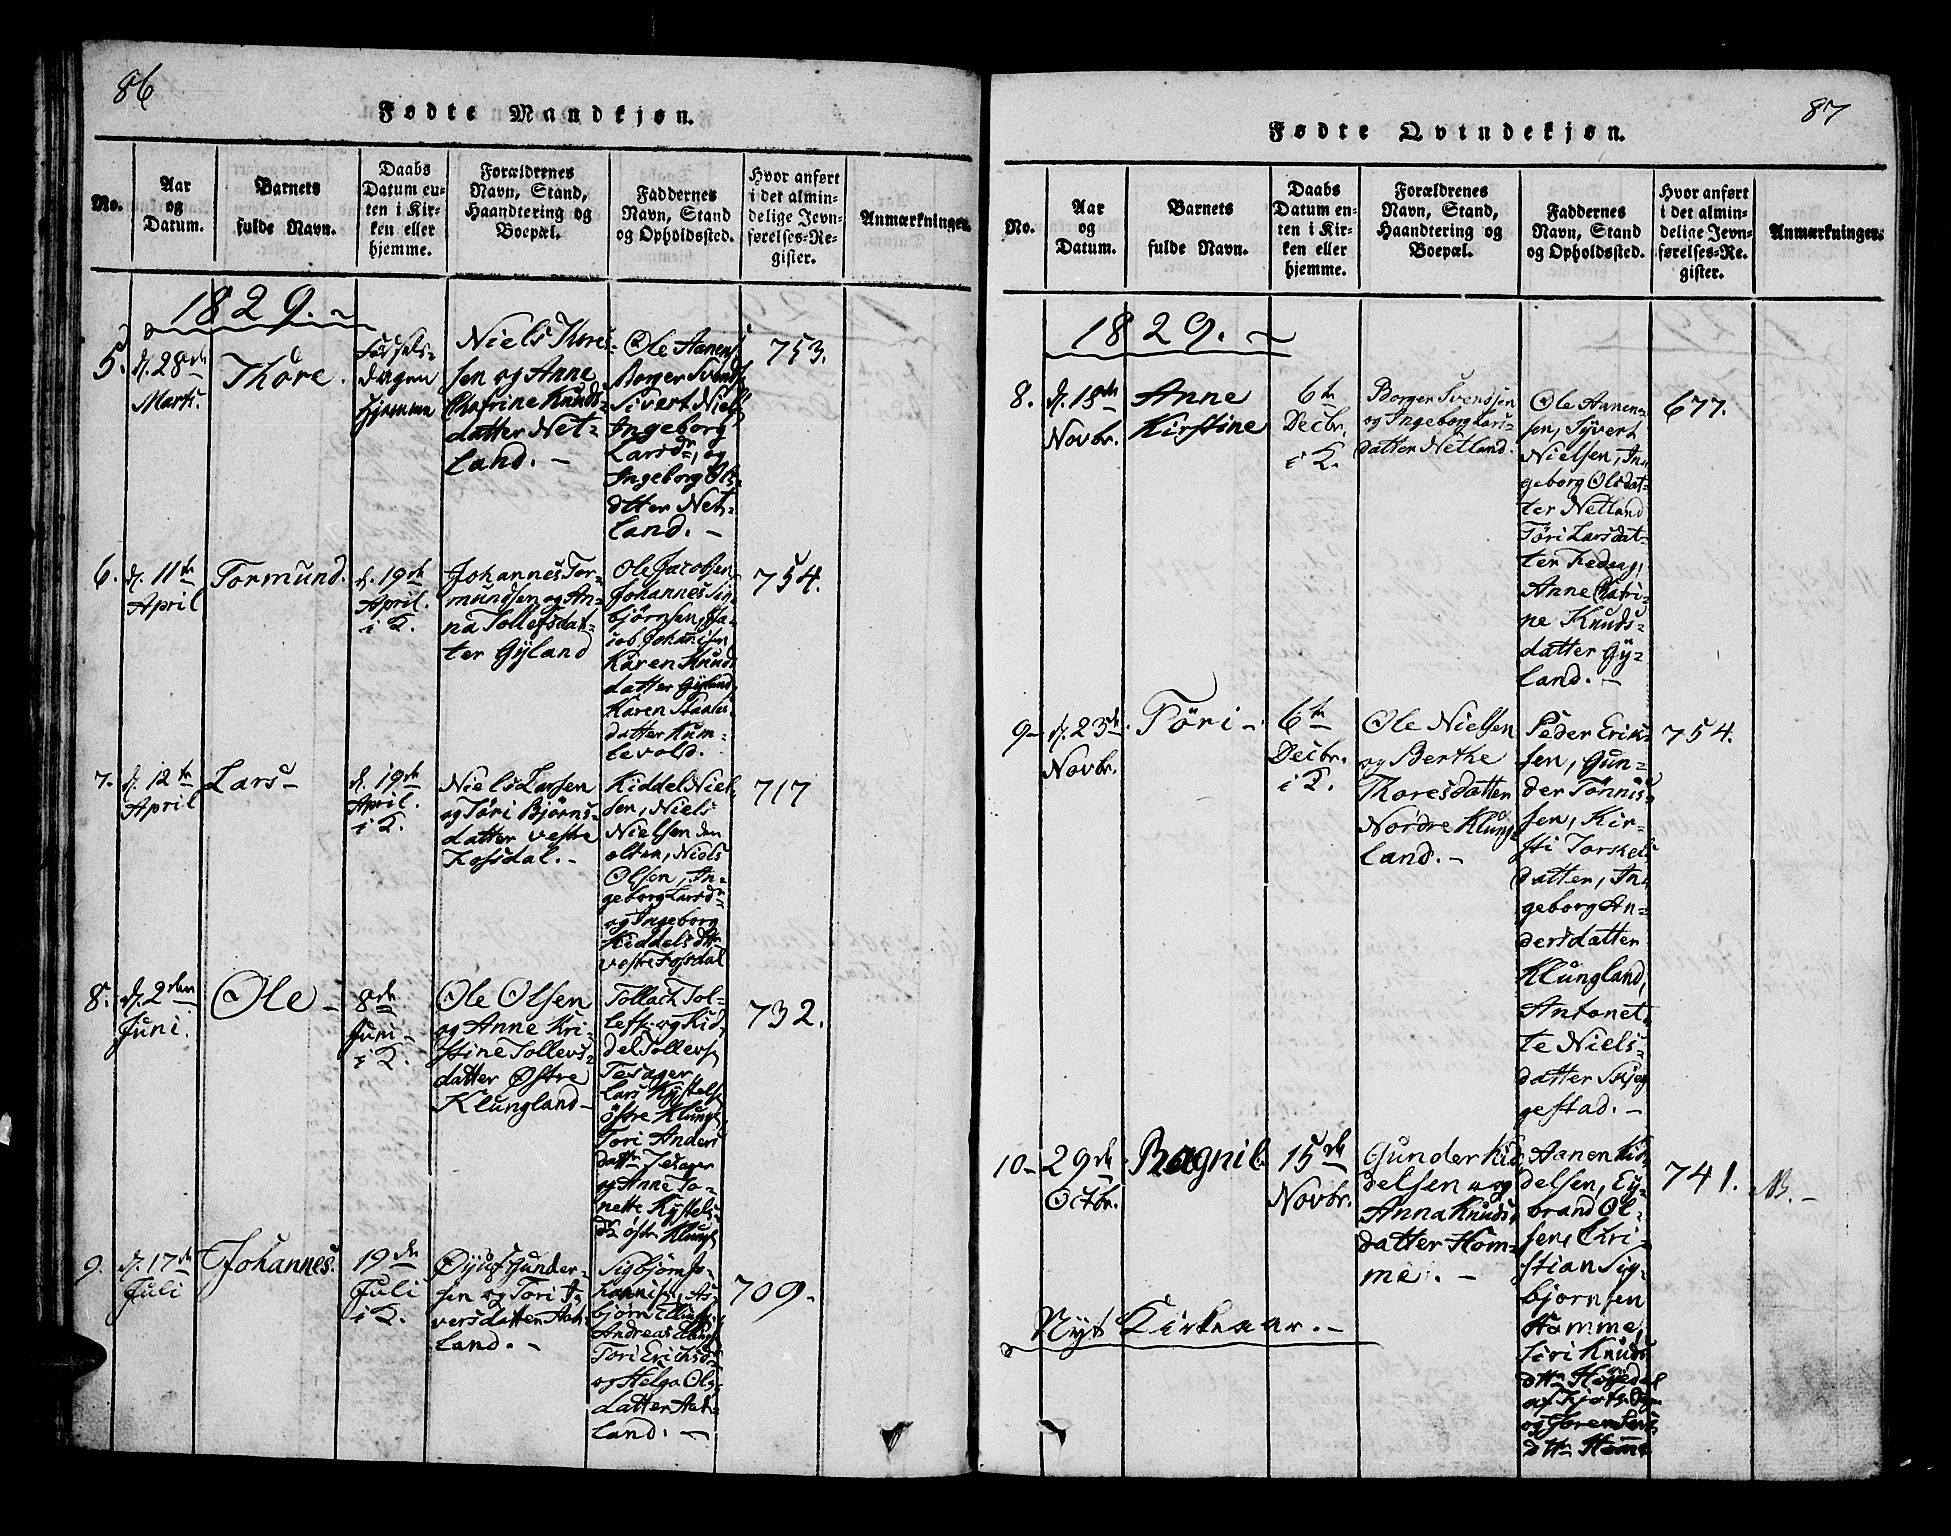 86
Fødte Mandkjøn.
No.
Aar
og
Datum.
Barnets
fulde Navn.
Daabs
Datum en-
ten i Kir-
ken eller
hjemme.
Forældrenes
Navn, Stand,
Haandtering og
Boepæl.
Faddernes
Navn, Stand
og Opholdssted.
Hvor anført
i det almin-
delige Jevn-
førelses-Re-
gister.
Anmærkninger.
1829.
5.
d. 28de
Marti.
Thore.
Fødsels-
dagen
hjemme
Niels Thores-
sen og Anne
Chatrine Knuds-
datter Net-
land.
Ole Aanens
Borger Svends
Sivert Niels
Ingeborg
Larsdr, og
Ingeborg Ols-
datter Net-
land.
753.
6.
d. 11te
April
Tormund.
d. 19de
April.
i K.
Johannes Tor-
mundsen og An-
na Tollefsdat-
ter Gyland
Ole Jacobsen
Johannes Sin-
bjørnsen, Ja-
cob Johannsen
Karen Knuds
datter Gyland,
Karen Staals-
datter Kum-
levold.
754.
7.
d. 12te
April
Lars
d. 19de
April.
i K.
Niels Larsen
og Tøri Bjørns-
datter vestre
Fossdal.
Kiddel Niel-
sen, Niels
Nielsen den
olten, Niels
Olsen, In-
geborg Larsdr
og Ingeborg
Kiddelsdtr
vestre Fossdal
717
8.
d. 2den
Juni.
Ole
8de
Juni
i K.
Ole Olsen
og Anne Kri-
stine Tollevs-
datter Østre
Klungland
Tollach Tol-
lefs. og Kid-
del Tollevs
Tesager
Lars Kystels
østre Klungl
Tori Anders
datter Tesager
og Anne To-
nette Kystels-
dr østr Klungl
732.
9.
d. 17de
Juli
Johannes.
19de
Juli
i K.
Øyuf Gunder-
sen og Tori I-
versdatter Aat-
land.
Sigbjørn Jo-
hannsen, As-
bjørn
Andreas
Tori Erichsdr
og Helga Ols-
datter Aat-
land.
709.
87
Fødte Qvindekjøn.
No.
Aar
og
Datum.
Barnets
fulde Navn.
Daabs
Datum en-
ten i Kir-
ken eller
hjemme.
Forældrenes
Navn, Stand,
Haandtering og
Boepæl.
Faddernes
Navn, Stand
og Opholdssted.
Hvor anført
i det almin-
delige Jevn-
førelses-Re-
gister.
Anmærkninger.
1829.
8.
d. 15de
Novbr.
Anne
Kirstine
6te
Decbr.
i K.
Borger Svendsen
og Ingeborg Lars-
datter Netland.
Ole Aanen-
sen, Syvert
Nielsen, In
geborg Olsdat-
ter Netland
Tøri Larsdat-
ter Fedog,
Anne Chatri-
ne Knuds-
datter Gy-
land.
677.
9
d. 23de
Novbr.
Töri
6te
Decbr.
i K.
Ole Nielsen
og Berthe
Thoresdatter
Nordre Klung-
land.
Peder Erik-
sen, Gun-
der Tønnis-
sen, Kir-
sti Torkels
datter, In
geborg An-
dersdatter
Klungland,
Antonet-
te Niels-
datter Skjeg
gestad.
754.
10
29de
Octbr.
Ragnil
15de
Novbr.
Gunder Kid
delsen og
Anna Knuds-
datter Hom-
me.
Aanen Kid
delsen, Ey-
brand Ol-
sen, Chri-
stian Sig-
bjørnsen
Homme,
Siri Knuds
dttr Høyedal
af
og Joren
dttr Homme
741.
NB.
Nyt Kirkeaar.